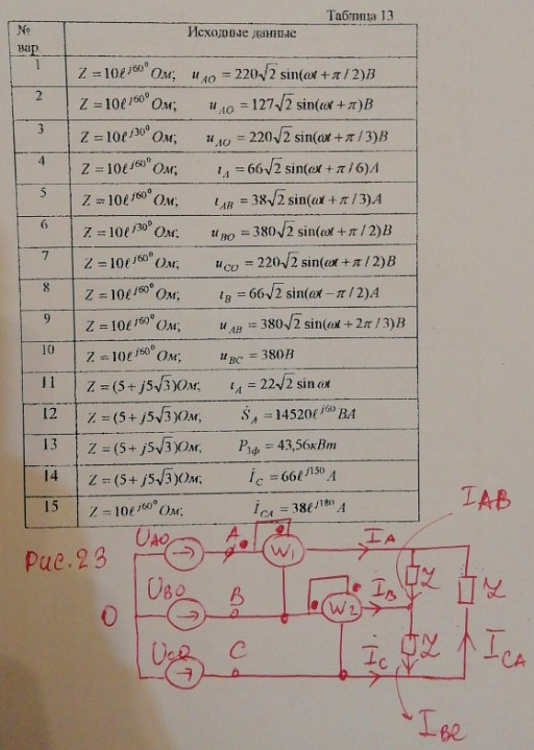 Таблица 13
№ вар. Исходные данные
1 Z = 10ℓ^j60⁰ Ом; u_AO = 220√2 sin(ωt + π/2)В
2 Z = 10ℓ^j60⁰ Ом; u_AO = 127√2 sin(ωt + π)В
3 Z = 10ℓ^j30⁰ Ом; u_AO = 220√2 sin(ωt + π/3)В
4 Z = 10ℓ^j60⁰ Ом; ι_A = 66√2 sin(ωt + π/6)А
5 Z = 10ℓ^j60⁰ Ом; ι_AB = 38√2 sin(ωt + π/3)А
6 Z = 10ℓ^j30⁰ Ом; u_BO = 380√2 sin(ωt + π/2)В
7 Z = 10ℓ^j60⁰ Ом; u_CO = 220√2 sin(ωt + π/2)В
8 Z = 10ℓ^j60⁰ Ом; ι_B = 66√2 sin(ωt − π/2)А
9 Z = 10ℓ^j60⁰ Ом; u_AB = 380√2 sin(ωt + 2π/3)В
10 Z = 10ℓ^j60⁰ Ом; u_BC = 380В
11 Z = (5 + j5√3)Ом; ι_A = 22√2 sin ωt
12 Z = (5 + j5√3)Ом; Ṡ_A = 14520ℓ^j60 ВА
13 Z = (5 + j5√3)Ом; P_3ф = 43,56кВт
14 Z = (5 + j5√3)Ом; İ_C = 66ℓ^j150 А
15 Z = 10ℓ^j60⁰ Ом; İ_CA = 38ℓ^j180 А
Рис.23
U_AO A W1 I_A I_AB
U_BO B W2 I_B Z Z
O
U_CO C İ_C Z I_CA
I_BC